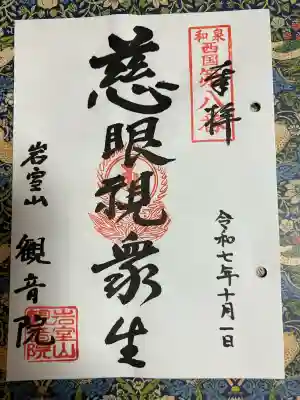 和泉
西国第八番
奉拝
令和七年十月一日
慈眼視衆生
岩室山
観音院
岩室山
観音院